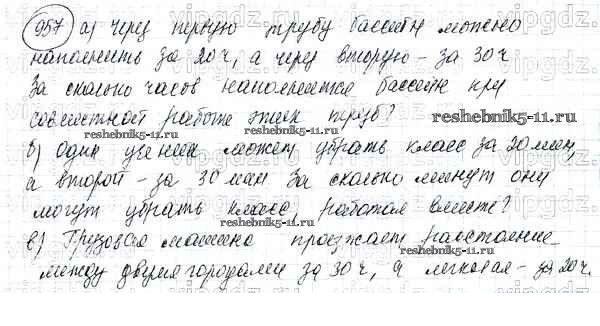 957 а) Через первую трубу бассейн можно
наполнить за 20ч, а через вторую – за 30ч
За сколько часов наполнится бассейн при
совместной работе этих труб?
reshebnik5-11.ru reshebnik5-11.ru reshebnik5-11.ru
б) Один ученик может убрать класс за 20 мин,
а второй – за 30 мин. За сколько минут они
могут убрать класс, работая вместе?
reshebnik5-11.ru
в) Грузовая машина проезжает расстояние
между двумя городами за 30ч, а легковая – за 20ч.